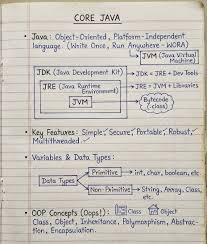 CORE JAVA
• Java: Object-Oriented, Platform-Independent
language. (Write Once, Run Anywhere - WORA)
JVM (Java Virtual Machine)
JDK (Java Development Kit)
JDK = JRE + Dev Tools
JRE (Java Runtime Environment)
JRE = JVM + Libraries
JVM
Bytecode (.class)
• Key Features: Simple, Secure, Portable, Robust,
Multithreaded
• Variables & Data Types:
Data Types
Primitive
int, char, boolean, etc.
Non-Primitive
String, Array, Class, etc.
• OOP Concepts (Oops!): Class Object
Class, Object, Inheritance, Polymorphism, Abstraction, Encapsulation.